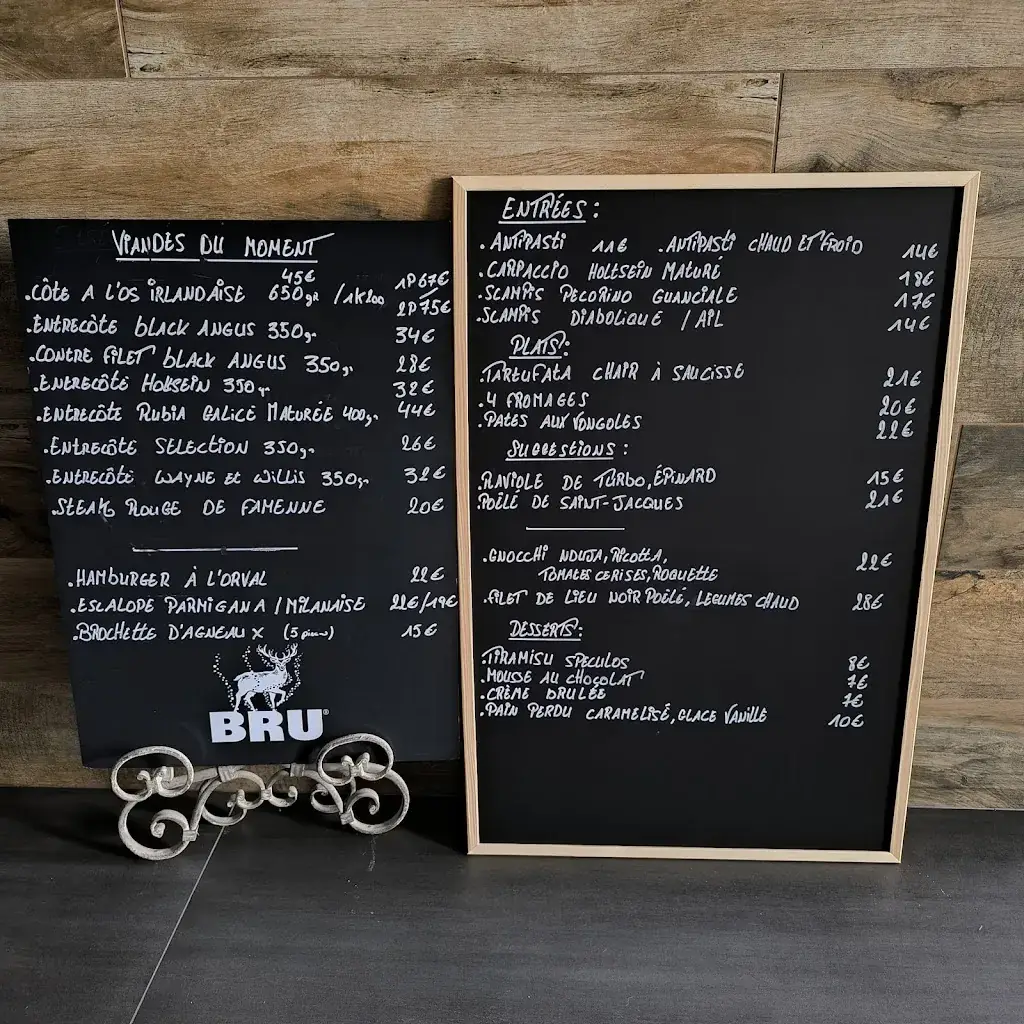 VIANDES DU MOMENT
45€
.CÔTE A L'OS IRLANDAISE 650gr /1K200 1P 67€
2P 75€
.ENTRECÔTE BLACK ANGUS 350gr 34€
.CONTRE FILET BLACK ANGUS 350gr 28€
.ENTRECÔTE HOLSEIN 350gr 32€
.ENTRECÔTE RUBIA GALICE MATURÉE 400gr 44€
.ENTRECÔTE SELECTION 350gr 26€
.ENTRECÔTE WAYNE ET WILLIS 350gr 32€
.STEAK ROUGE DE FAMENNE 20€
.HAMBURGER À L'ORVAL 22€
.ESCALOPE PARMIGANA / MILANAISE 22€/19€
.BROCHETTE D'AGNEAUX (5 pièces) 15€
BRU®
ENTRÉES :
.ANTIPASTI 11€ .ANTIPASTI CHAUD ET FROID 14€
.CARPACCIO HOLTSEIN MATURÉ 18€
.SCAMPIS PECORINO GUANCIALE 17€
.SCAMPIS DIABOLIQUE / AIL 14€
PLATS :
.TARTUFATA CHAIR À SAUCISSE 21€
.4 FROMAGES 20€
.PATES AUX VONGOLES 22€
SUGGESTIONS :
.RAVIOLE DE TURBO, ÉPINARD 15€
.POÊLÉ DE SAINT-JACQUES 21€
.GNOCCHI NDUJA, RICOTTA, 22€
TOMATES CERISES, ROQUETTE
.FILET DE LIEU NOIR POÊLÉ, LEGUMES CHAUD 28€
DESSERTS :
.TIRAMISU SPECULOS 8€
.MOUSSE AU CHOCOLAT 7€
.CRÈME BRULÉE 7€
.PAIN PERDU CARAMELISÉ, GLACE VANILLE 10€